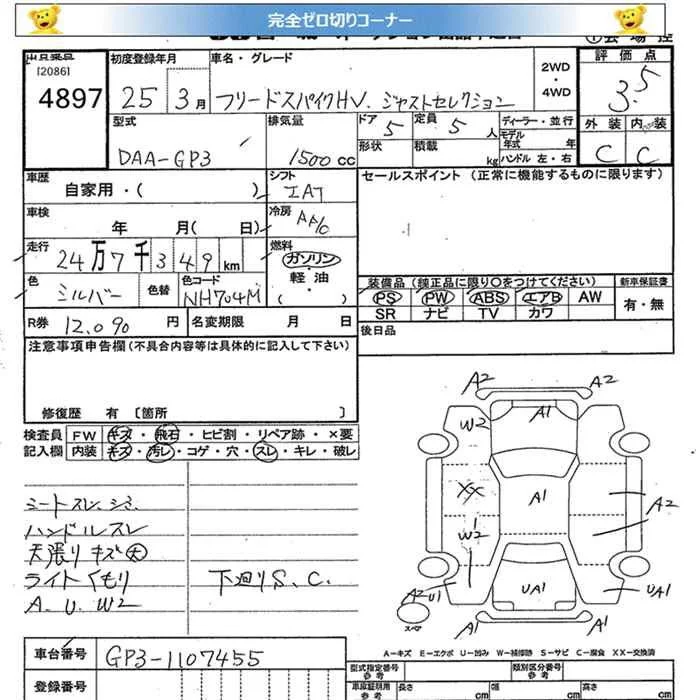 完全ゼロ切りコーナー
出品番号
[2086]
4897
初度登録年月
25年 3月
車名・グレード
フリードスパイクHV. ジャストセレクション
2WD
・
4WD
評 価 点
3.5
外 装 内 装
C C
型式
DAA-GP3
排気量
1500 cc
ドア 5
定員 5 人
形状
積載 kg
ディーラー・並行
モデル年式 年
ハンドル 左・右
車歴
自家用・( )
シフト
IAT
セールスポイント(正常に機能するものに限ります)
車検
年 月( 日)
冷房
AAC
走行
24万7千349km
燃料
ガソリン
・
軽 油
・
( )
色
シルバー
色替
色コード
NH704M
装備品(純正品に限り○をつけてください)
新車保証書
PS PW ABS エアB AW
SR ナビ TV カワ
有・無
R券 12,090 円
名変期限 月 日
後日品
注意事項申告欄(不具合内容等は具体的に記入して下さい)
修復歴 有 〔箇所 〕
検査員
記入欄
FW キズ・飛石・ヒビ割・リペア跡・×要
内装 キズ・汚レ・コゲ・穴・スレ・キレ・破レ
シートスレ、シミ
ハンドルスレ
天張りキズ大
ライトくもり
下廻りS、C.
A. U. W2
A2
A2
W2
A1
XX
A1
A2
W2
A2
U1
UA1
UA1
スペア
A1
A1
A-キズ E-エクボ U-凹み W-補修跡 S-サビ C-腐食 XX-交換済
車台番号
GP3-1107455
登録番号
型式指定番号
参考
類別区分番号
参考
車庫証明用
参考
長さ cm
幅 cm
高さ cm